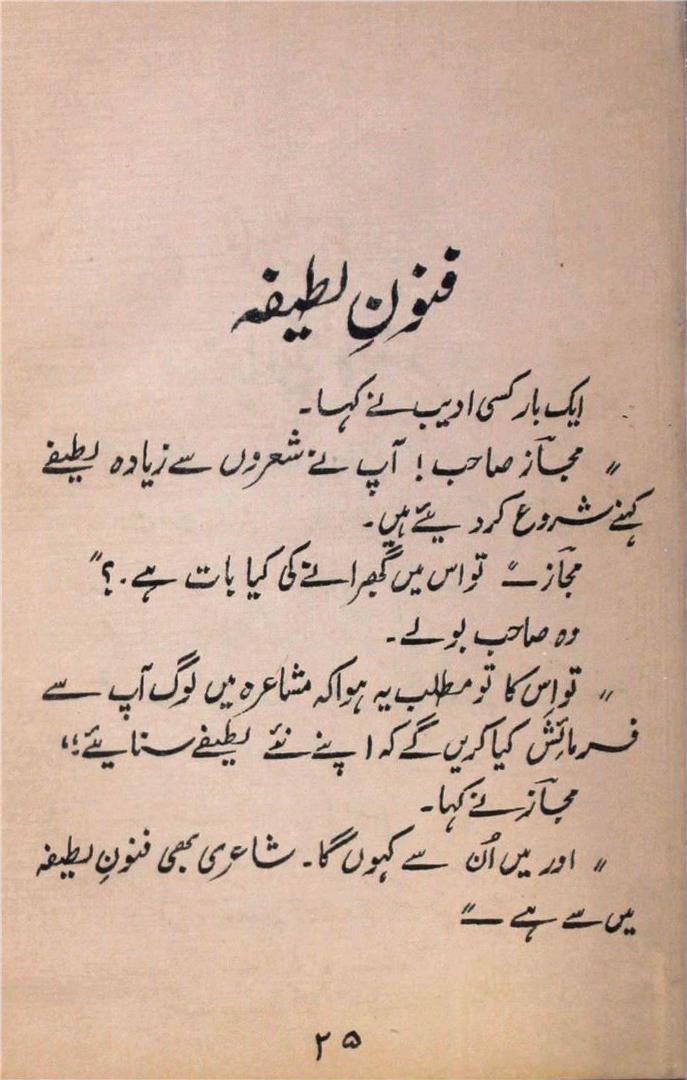 فنونِ لطیفہ
ایک بار کسی ادیب نے کہا۔
” مجاز صاحب! آپ نے شعروں سے زیادہ لطیفے
کہنے شروع کردیئے ہیں۔
مجاز۔“ تو اس میں گھبرانے کی کیا بات ہے.؟“
وہ صاحب بولے۔
” تو اِس کا تو مطلب یہ ہوا کہ مشاعرہ میں لوگ آپ سے
فرمائش کیا کریں گے کہ اپنے نئے لطیفے سنایئے؛“
مجاز نے کہا۔
” اور میں اُن سے کہوں گا۔ شاعری بھی فنونِ لطیفہ
میں سے ہے ۔“
۲۵